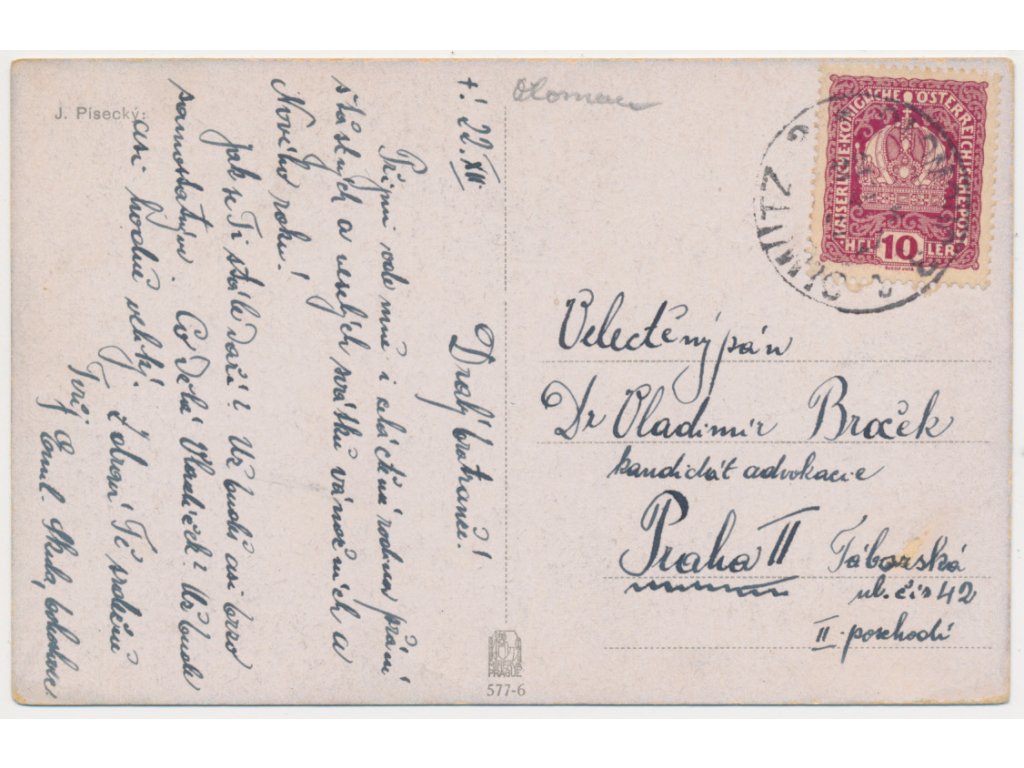 J. Písecký:
Olomouc
† 22.XII
Drahý bratranče!
Přijmi ode mne i celé ctěné rodiny přání
šťastných a veselých svátků vánočních a
Nového roku!
Jak se Ti stále daří? Už budeš asi brzo
samostatným. Co dělá Vladíček? Už bude
asi hodně veliký. Zdraví Tě srdečně
Tvůj
KAISERLICHE KÖNIGLICHE ÖSTERREICHISCHE POST
HEL 10 LER
OLMÜTZ 2
Velectěný pán
Dr Vladimír Broček
kandidát advokacie
Praha II Táborská
ul. čís 42
II. poschodí
PRAGUE
577-6